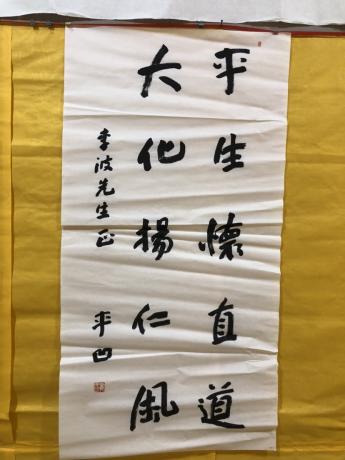 平生懷直道
大化揚仁風
李波先生正
平凹